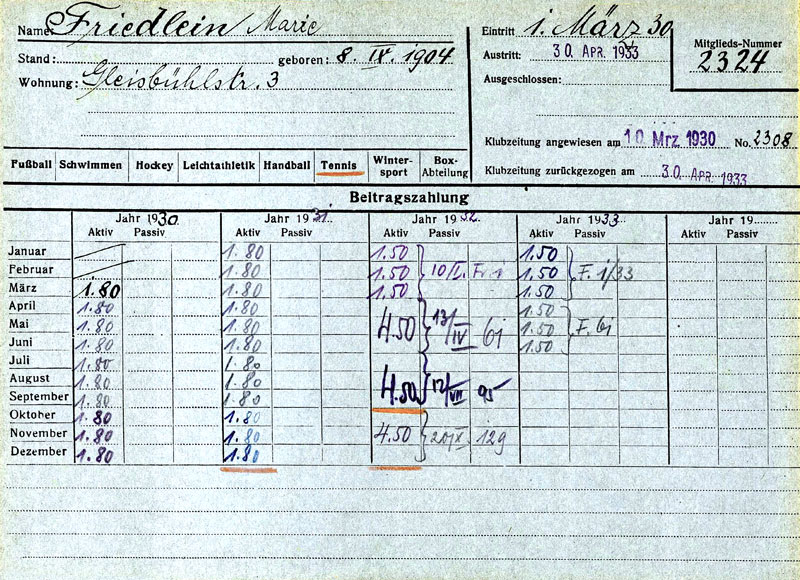 Name: Friedlein Marie
Stand: geboren: 8. IX. 1904
Wohnung: Gleisbühlstr. 3
Eintritt 1. März 30
Austritt: 30. APR. 1933
Ausgeschlossen:
Mitglieds-Nummer
2324
Klubzeitung angewiesen am 10 Mrz 1930 No. 2308
Klubzeitung zurückgezogen am 30. APR. 1933
Fußball Schwimmen Hockey Leichtathletik Handball Tennis Winter-sport Box-Abteilung
Beitragszahlung
Jahr 1930. Jahr 1931. Jahr 1932. Jahr 1933. Jahr 19
Aktiv Passiv Aktiv Passiv Aktiv Passiv Aktiv Passiv Aktiv Passiv
Januar 1.80 1.50 1.50
Februar 1.80 1.50 10/I. 1.50 F. 1/33
März 1.80 1.80 1.50 1.50
April 1.80 1.80 1.50
Mai 1.80 1.80 4.50 13/IV 6j 1.50 F. 6j
Juni 1.80 1.80 1.50
Juli 1.80 1.80
August 1.80 1.80 4.50 12/VII
September 1.80 1.80
Oktober 1.80 1.80
November 1.80 1.80 4.50 20/X. 129
Dezember 1.80 1.80